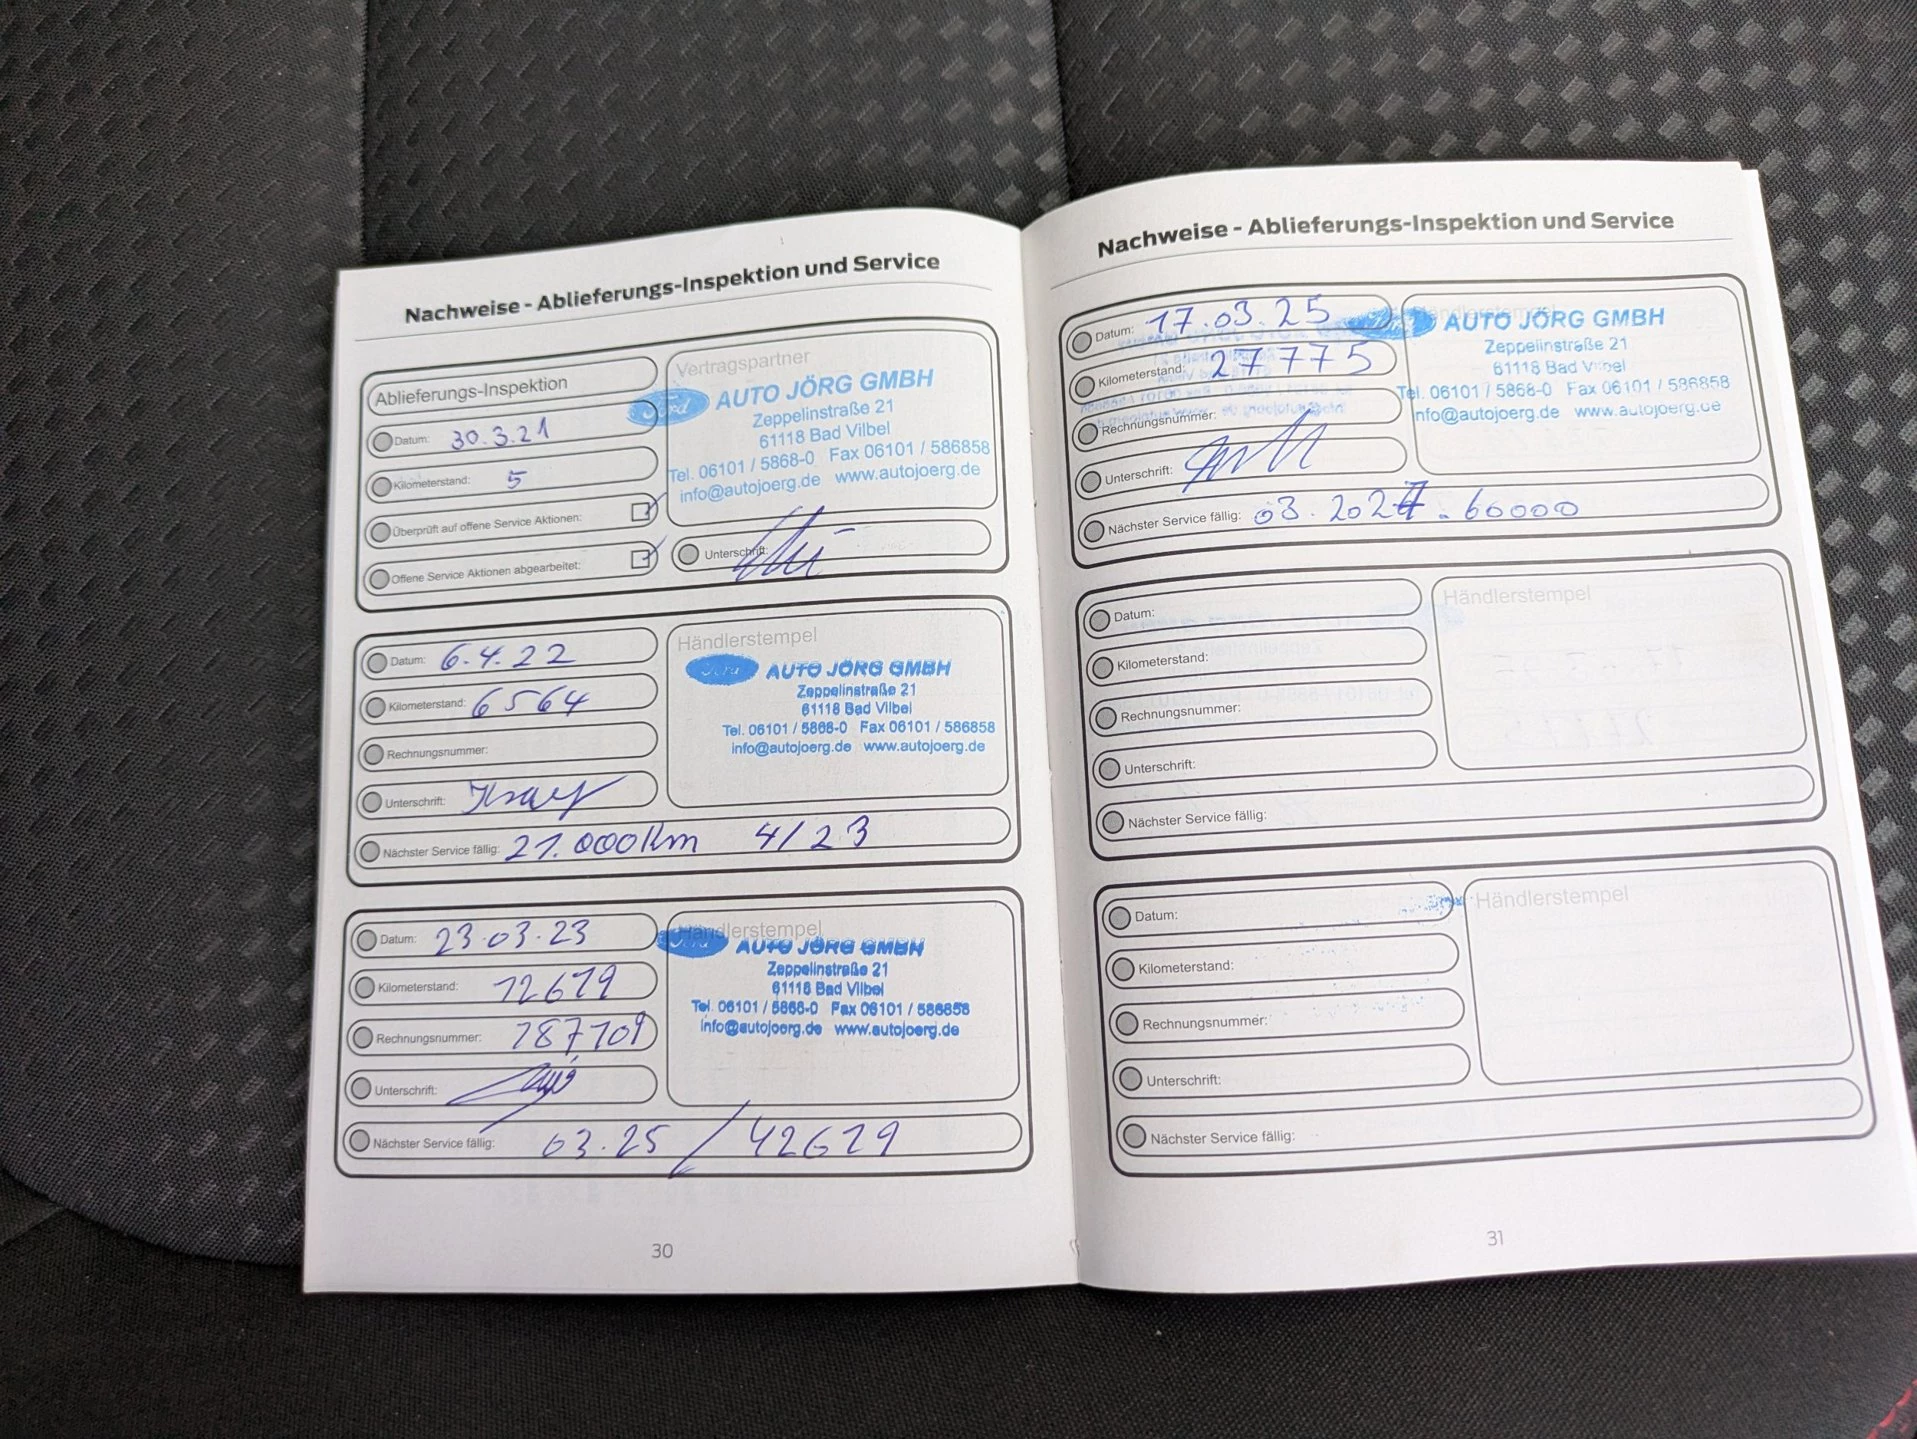 Nachweise - Ablieferungs-Inspektion und Service
Ablieferungs-Inspektion
Datum: 30.3.21
Kilometerstand: 5
Überprüft auf offene Service Aktionen:
Offene Service Aktionen abgearbeitet:
Vertragspartner
Ford AUTO JÖRG GMBH
Zeppelinstraße 21
61118 Bad Vilbel
Tel. 06101 / 5868-0 Fax 06101 / 586858
info@autojoerg.de www.autojoerg.de
Unterschrift:
Datum: 6.4.22
Kilometerstand: 6564
Rechnungsnummer:
Unterschrift:
Nächster Service fällig: 21.000km 4/23
Händlerstempel
Ford AUTO JÖRG GMBH
Zeppelinstraße 21
61118 Bad Vilbel
Tel. 06101 / 5868-0 Fax 06101 / 586858
info@autojoerg.de www.autojoerg.de
Datum: 23.03.23
Kilometerstand: 12679
Rechnungsnummer: 187109
Unterschrift:
Nächster Service fällig: 03.25 / 42679
Händlerstempel
Ford AUTO JÖRG GMBH
Zeppelinstraße 21
61118 Bad Vilbel
Tel. 06101 / 5868-0 Fax 06101 / 586858
info@autojoerg.de www.autojoerg.de
30
Nachweise - Ablieferungs-Inspektion und Service
Datum: 17.03.25
Kilometerstand: 27775
Rechnungsnummer:
Unterschrift:
Nächster Service fällig: 03.2027. 60000
Händlerstempel
AUTO JÖRG GMBH
Zeppelinstraße 21
61118 Bad Vilbel
Tel. 06101 / 5868-0 Fax 06101 / 586858
info@autojoerg.de www.autojoerg.de
Datum:
Kilometerstand:
Rechnungsnummer:
Unterschrift:
Nächster Service fällig:
Händlerstempel
Datum:
Kilometerstand:
Rechnungsnummer:
Unterschrift:
Nächster Service fällig:
Händlerstempel
31